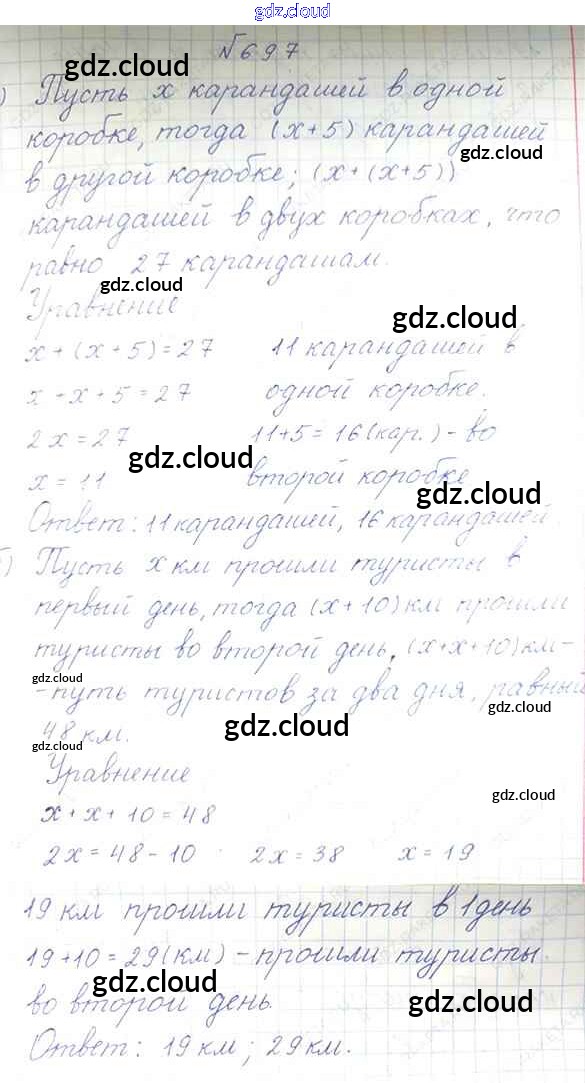 gdz.cloud
№697
gdz.cloud
) Пусть x карандашей в одной
коробке, тогда (x+5) карандашей
gdz.cloud
в другой коробке; (x+(x+5))
карандашей в двух коробках, что
равно 27 карандашам.
gdz.cloud
Уравнение
gdz.cloud
x+(x+5)=27 11 карандашей в
x+x+5=27 одной коробке.
2x=27 11+5=16(кар.)-во
gdz.cloud
x=11 второй коробке
gdz.cloud
Ответ: 11 карандашей, 16 карандашей.
) Пусть x км прошли туристы в
первый день, тогда (x+10) км прошли
туристы во второй день, (x+x+10)км-
gdz.cloud
-путь туристов за два дня, равный
gdz.cloud
48 км.
gdz.cloud
gdz.cloud
Уравнение
gdz.cloud
x+x+10=48
2x=48-10 2x=38 x=19
19 км прошли туристы в 1 день
19+10=29(км)-прошли туристы
gdz.cloud
во второй день.
gdz.cloud
Ответ: 19 км; 29 км.